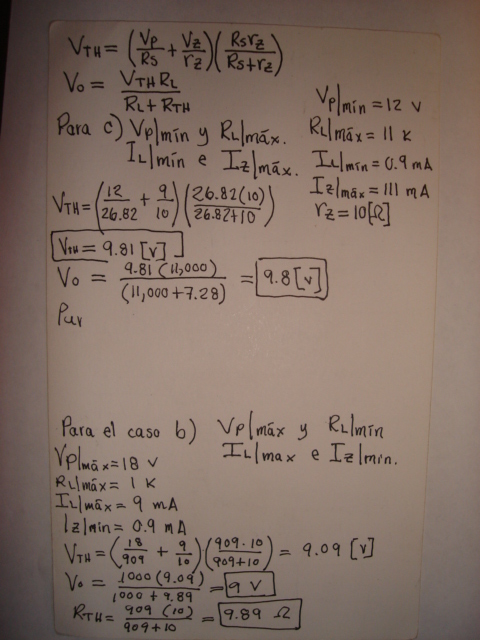 VTH = (Vp/Rs + Vz/rz)(Rsrz/Rs+rz)
Vo = VTH RL/RL+RTH
Para c) Vp|mín y RL|máx.
IL|mín e Iz|máx.
Vp|mín = 12 V
RL|máx = 11 K
IL|mín = 0.9 mA
Iz|máx = 111 mA
rz = 10[Ω]
VTH = (12/26.82 + 9/10)(26.82(10)/26.82+10)
VTH = 9.81 [V]
Vo = 9.81 (11,000)/(11,000+7.28) = 9.8[V]
Para el caso b) Vp|máx y RL|mín
IL|max e Iz|min.
Vp|máx = 18 V
RL|máx = 1 K
IL|máx = 9 mA
Iz|min = 0.9 mA
VTH = (18/909 + 9/10)(909·10/909+10) = 9.09 [V]
Vo = 1000 (9.09)/1000 + 9.89 = 9 V
RTH = 909 (10)/909+10 = 9.89 Ω